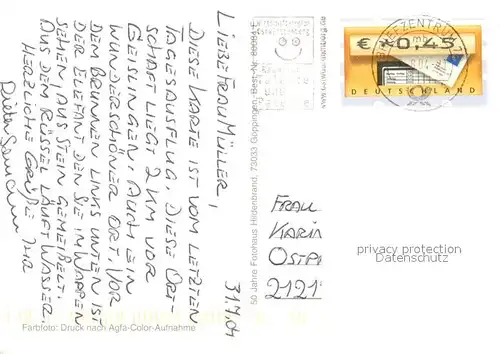 LIEBE FRAU MÜLLER,
DIESE KARTE IST VOM LETZTEN
TAGESAUSFLUG. DIESE ORT-
SCHAFT LIEGT 2 KM VOR
GEISLINGEN. AUCH EIN
WUNDERSCHÖNER ORT. VOR
DEM BRUNNEN LINKS UNTEN IST
DER ELEFANT DEN SIE IM WAPPEN
SEHEN, AUS STEIN GEMEIßELT.
AUS DEM RÜSSEL LÄUFT WASSER.
HERZLICHE GRÜßE IHR
Dieter
31.7.04
Farbfoto: Druck nach Agfa-Color-Aufnahme
50 Jahre Fotohaus Hildenbrand, 73033 Göppingen, Best.-Nr.
€ *0,45
DEUTSCHLAND
BRIEFZENTRUM
FRAU
KARIN
OSTP
2121
privacy protection
Datenschutz